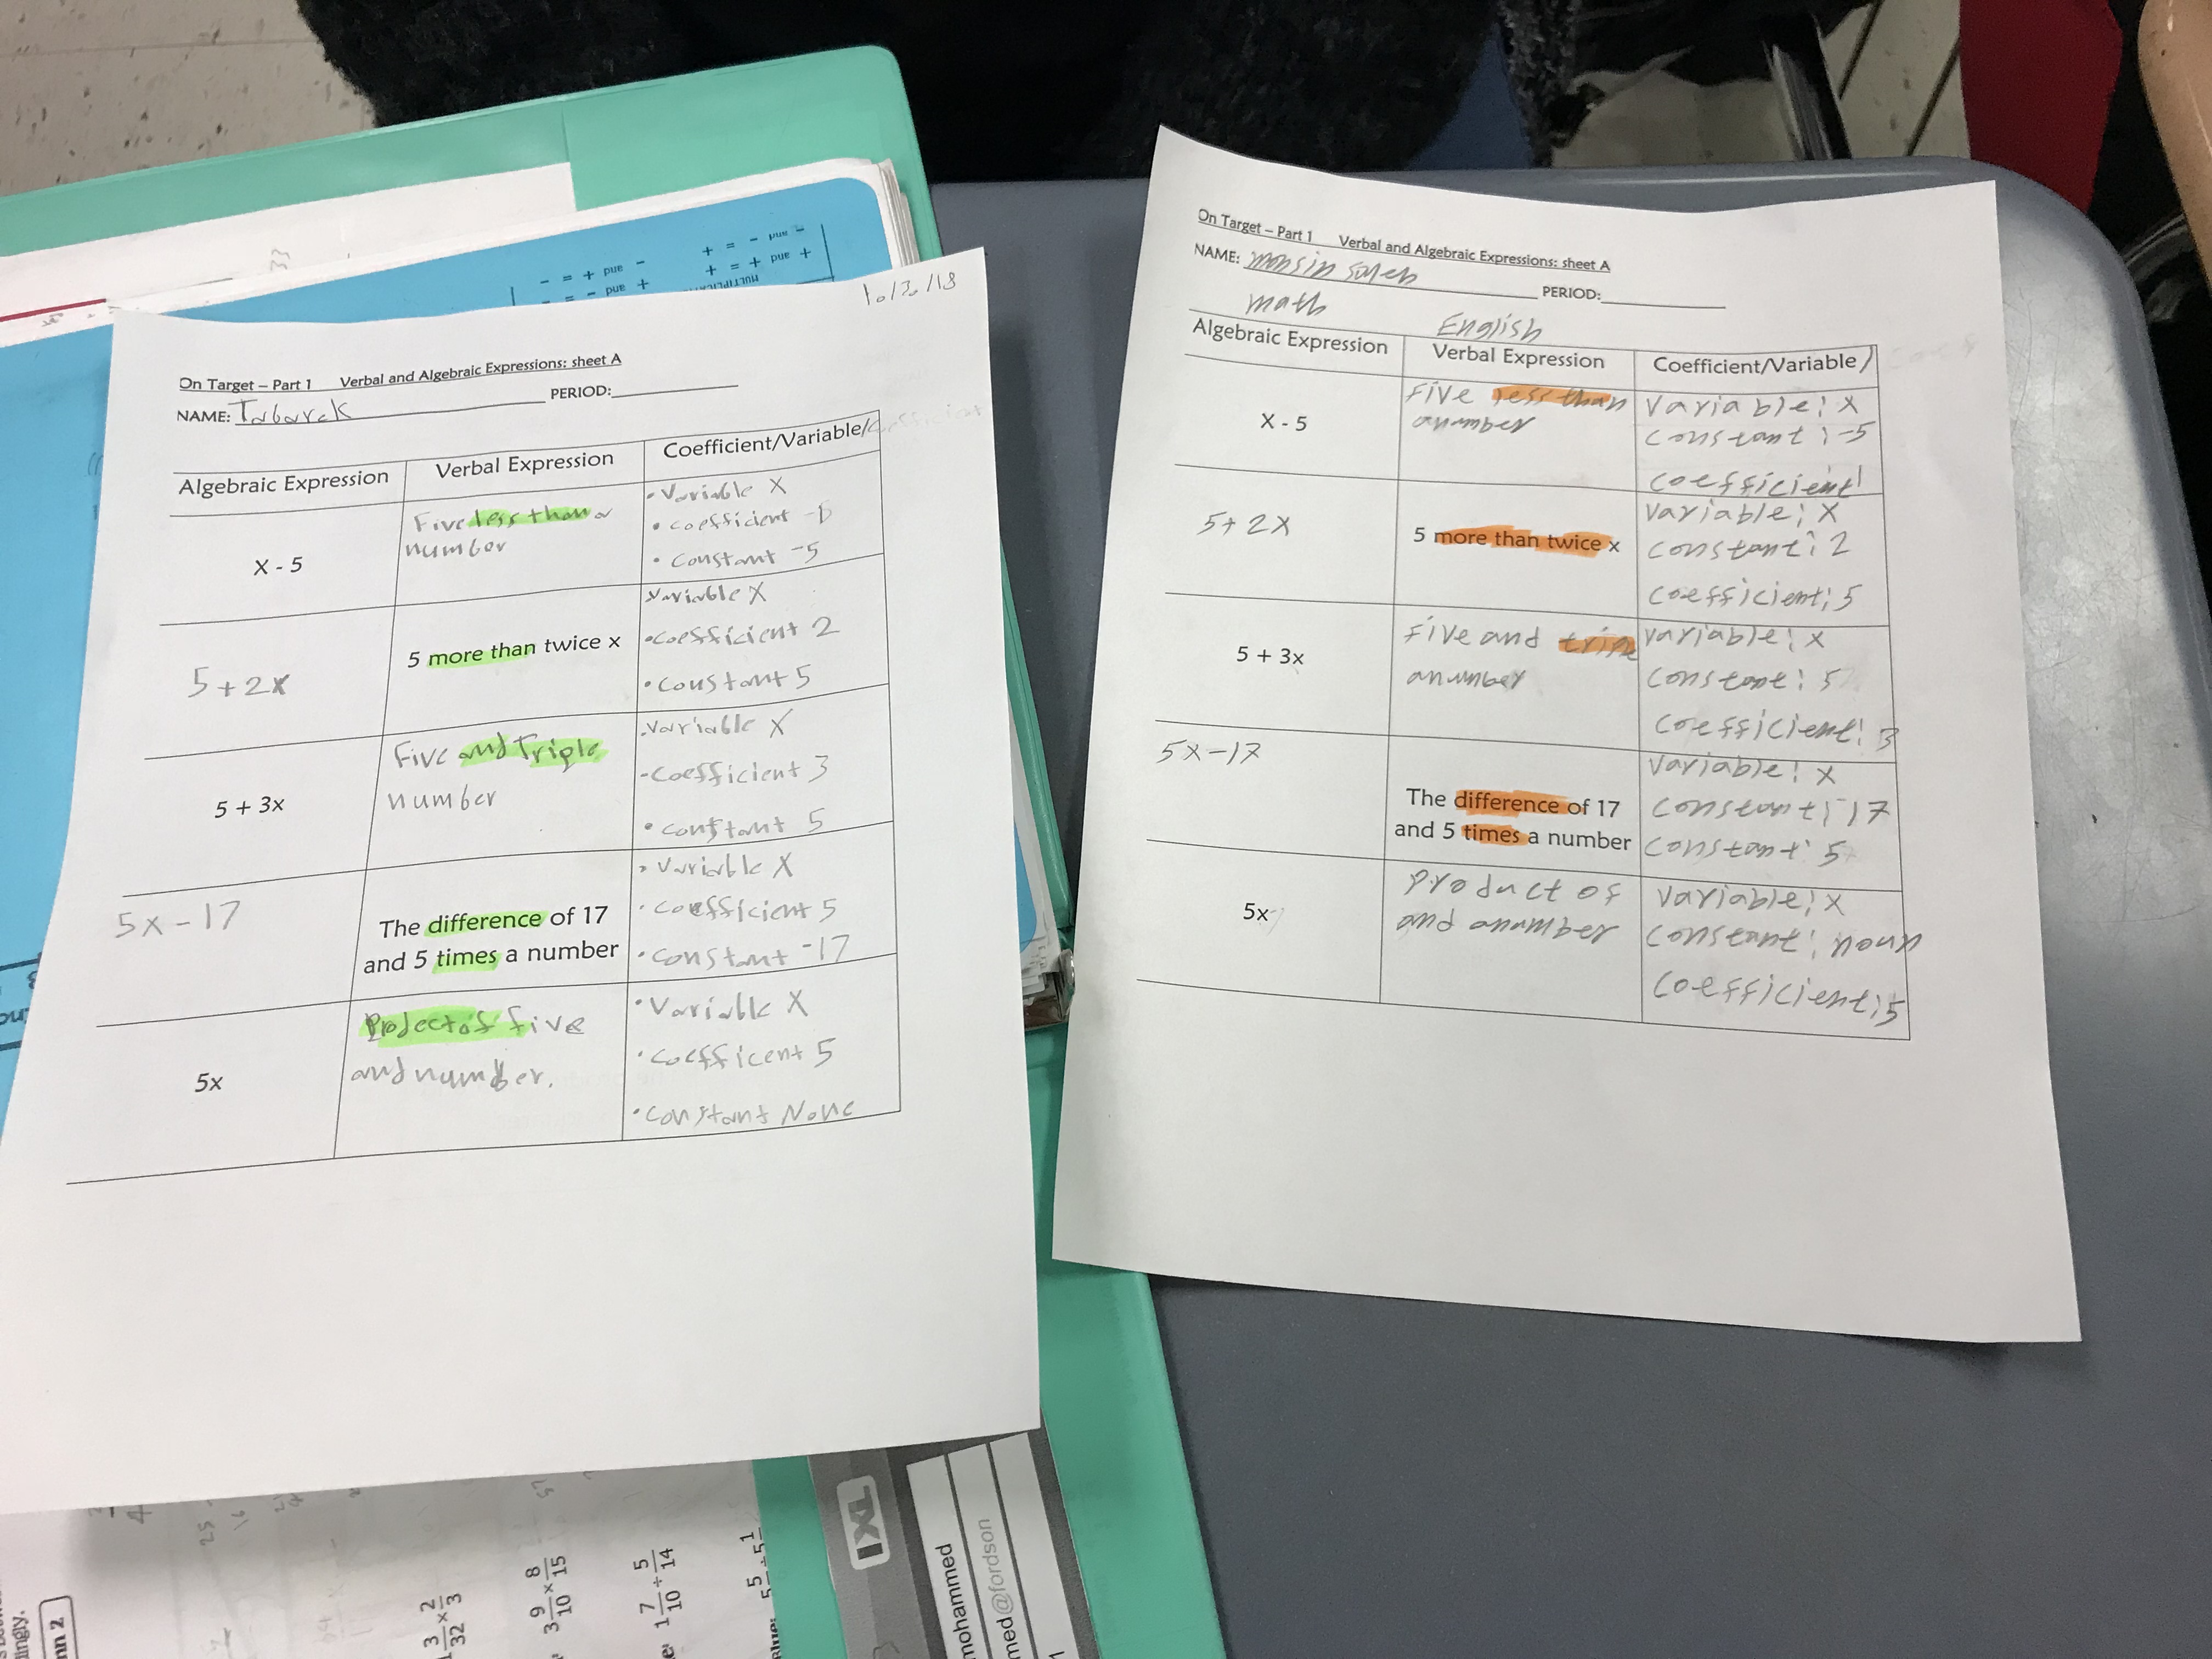 10/3/18
On Target – Part 1 Verbal and Algebraic Expressions: sheet A
NAME: Tabarek PERIOD:
Algebraic Expression Verbal Expression Coefficient/Variable/
X - 5
Five less than a
number
• Variable X
• coefficient
• constant -5
5+2x
5 more than twice x
variable X
• coefficient 2
• constant 5
5 + 3x
Five and Triple
number
variable X
- coefficient 3
• constant 5
5x-17
The difference of 17
and 5 times a number
• Variable X
• coefficient 5
• constant -17
5x
Projectof five
and number.
• Variable X
• coefficent 5
• constant None
On Target – Part 1 Verbal and Algebraic Expressions: sheet A
NAME: PERIOD:
math English
Algebraic Expression Verbal Expression Coefficient/Variable/
X - 5
Five less than
anumber
Variable: X
constant: -5
coefficient
5+2X
5 more than twice x
Variable: X
constant: 2
coefficient: 5
5 + 3x
Five and triple
anumber
Variable: X
constant: 5
coefficient: 3
5x-17
The difference of 17
and 5 times a number
Variable: X
constant: -17
constant: 5
5x
product of
and anumber
Variable: X
constant: noun
coefficient: 5
- and - = + - and + = -
+ and + = + + and - = -
IXL
mohammed
med@fordson
3/32 × 2/3
3 9/10 × 8/15
1 7/10 ÷ 5/14
dingly.